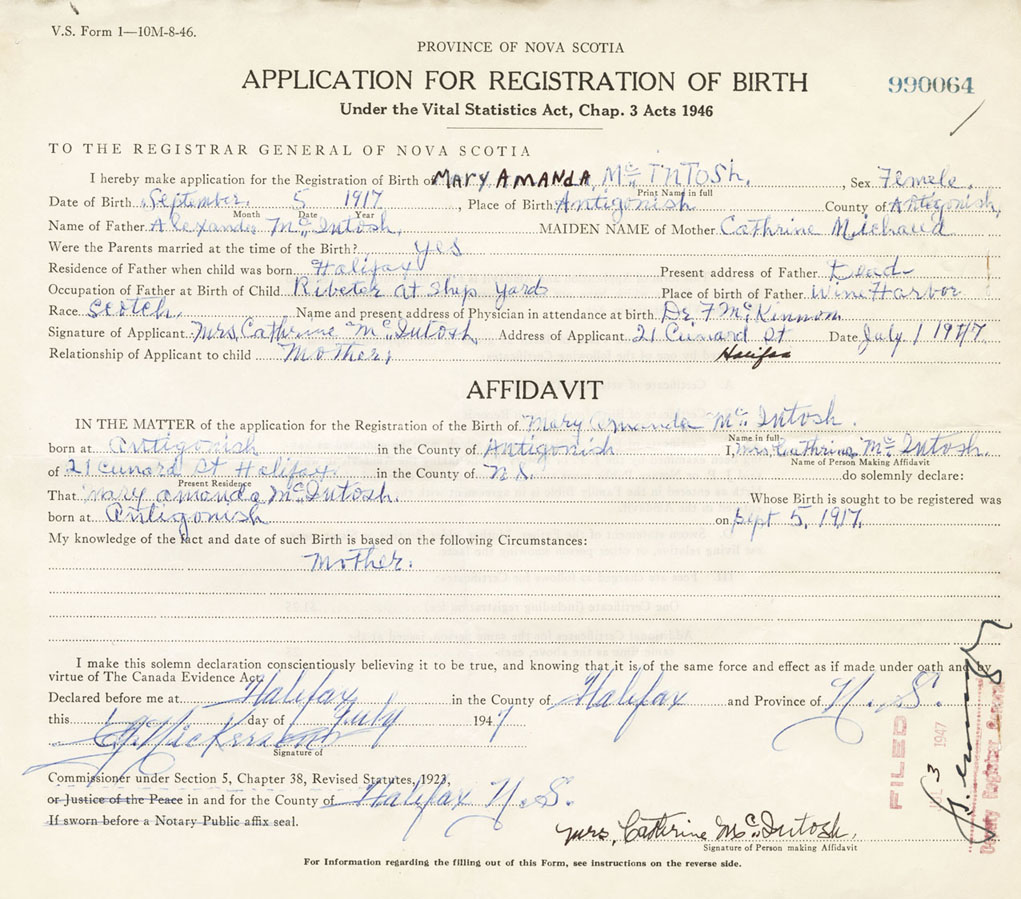 V.S. Form 1—10M-8-46.
PROVINCE OF NOVA SCOTIA
APPLICATION FOR REGISTRATION OF BIRTH
990064
Under the Vital Statistics Act, Chap. 3 Acts 1946
TO THE REGISTRAR GENERAL OF NOVA SCOTIA
I hereby make application for the Registration of Birth of MARY AMANDA Mc INTOSh. , Sex Femele.
Print Name in full
Date of Birth September 5 1917 , Place of Birth Antigonish County of Antigonish,
Month Date Year
Name of Father Alexander McIntosh. MAIDEN NAME of Mother Cathrine Michaud
Were the Parents married at the time of the Birth? yes
Residence of Father when child was born Halifax Present address of Father Dead
Occupation of Father at Birth of Child Ribeter at Ship Yards Place of birth of Father Wine Harbor
Race Scotch. Name and present address of Physician in attendance at birth Dr F McKinnon
Signature of Applicant Mrs Cathrine McIntosh Address of Applicant 21 Cunard St Date July 1 1947
Relationship of Applicant to child Mother, Halifax
AFFIDAVIT
IN THE MATTER of the application for the Registration of the Birth of Mary Amanda McIntosh.
Name in full
born at Antigonish in the County of Antigonish I, Mrs. Cathrine McIntosh.
Name of Person Making Affidavit
of 21 Cunard St Halifax in the County of N.S. do solemnly declare:
Present Residence
That Mary Amanda McIntosh. Whose Birth is sought to be registered was
born at Antigonish on Sept 5, 1917,
My knowledge of the fact and date of such Birth is based on the following Circumstances:
Mother.
I make this solemn declaration conscientiously believing it to be true, and knowing that it is of the same force and effect as if made under oath and by
virtue of The Canada Evidence Act
Declared before me at Halifax in the County of Halifax and Province of N.S.
this day of July 1947
Signature of
Commissioner under Section 5, Chapter 38, Revised Statutes, 1923,
or Justice of the Peace in and for the County of Halifax N.S.
If sworn before a Notary Public affix seal.
Mrs. Cathrine McIntosh.
Signature of Person making Affidavit
For Information regarding the filling out of this Form, see instructions on the reverse side.
FILED
3 1947
Deputy Registrar General